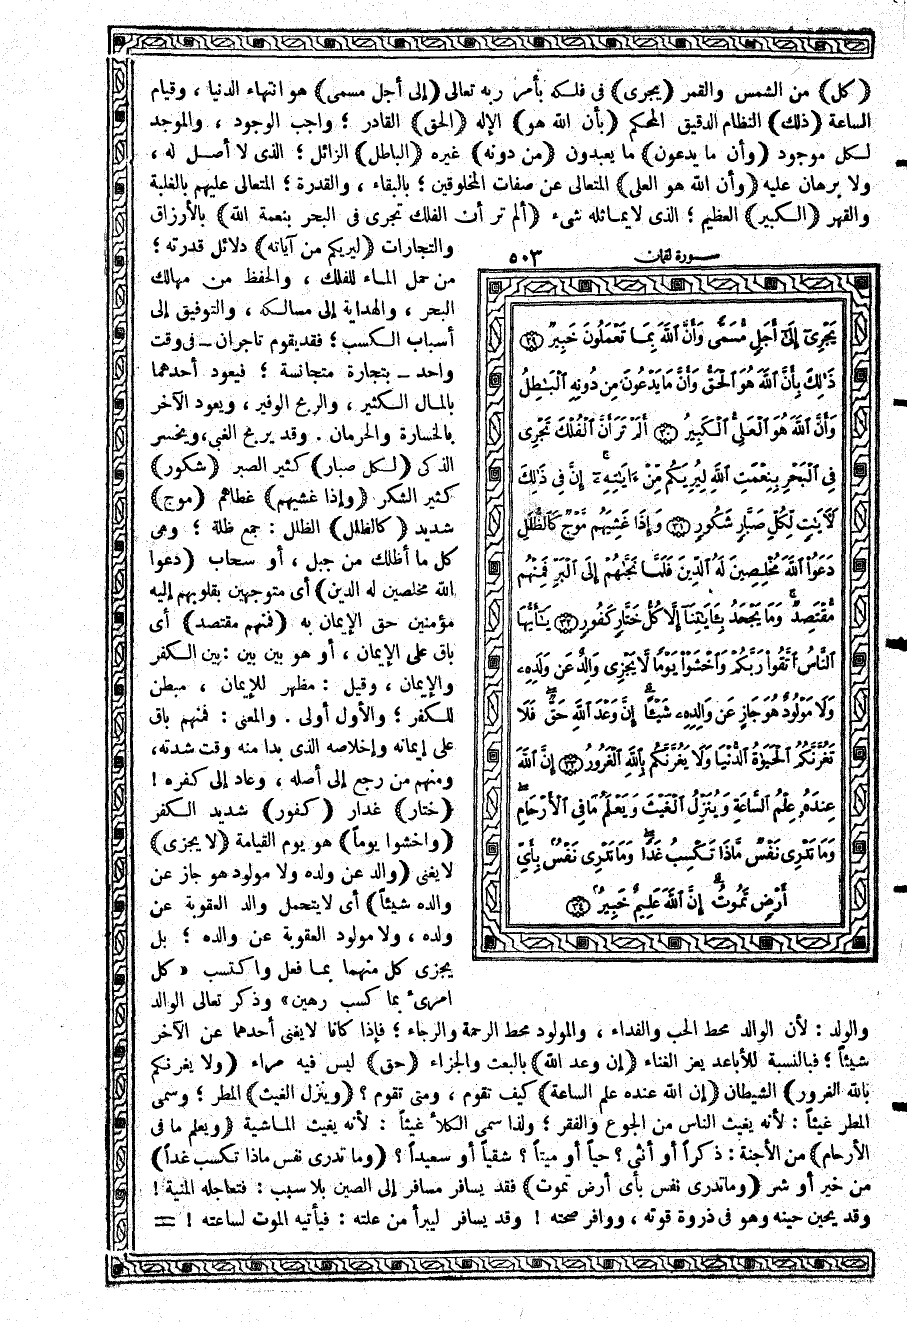 (كل) من الشمس والقمر (يجرى) فى فلكه بأمر ربه تعالى (إلى أجل مسمى) هو انتهاء الدنيا ، وقيام
الساعة (ذلك) النظام الدقيق المحكم (بأن الله هو) الإله (الحق) القادر ؛ واجب الوجود ، والموجد
لكل موجود (وأن ما يدعون) ما يعبدون (من دونه) غيره (الباطل) الزائل ؛ الذى لا أصل له ،
ولا برهان عليه (وأن الله هو العلى) المتعالى عن صفات المخلوقين ؛ بالبقاء ، والقدرة ؛ المتعالى عليهم بالغلبة
والقهر (الكبير) العظيم ؛ الذى لا يماثله شىء (ألم تر أن الفلك تجرى فى البحر بنعمة الله) بالأرزاق
والتجارات (ليريكم من آياته) دلائل قدرته ؛
من حمل الماء للفلك ، والحفظ من مهالك
البحر ، والهداية إلى مسالكه ، والتوفيق إلى
أسباب الكسب ؛ فقد يقوم تاجران ــ فى وقت
واحد ــ بتجارة متجانسة ؛ فيعود أحدهما
بالمال الكثير ، والربح الوفير ، ويعود الآخر
بالخسارة والحرمان . وقد يربح الغبى ، ويخسر
الذكى (لكل صبار) كثير الصبر (شكور)
كثير الشكر (وإذا غشيهم) غطاهم (موج)
شديد (كالظلل) الظلل : جمع ظلة ؛ وهى
كل ما أظلك من جبل ، أو سحاب (دعوا
الله مخلصين له الدين) أى متوجهين بقلوبهم إليه
مؤمنين حق الإيمان به (فمنهم مقتصد) أى
باق على الإيمان ، أو هو بين بين : بين الكفر
والإيمان ، وقيل : مظهر للإيمان ، مبطن
للكفر ؛ والأول أولى . والمعنى : فمنهم باق
على إيمانه وإخلاصه الذى بدا منه وقت شدته،
ومنهم من رجع إلى أصله ، وعاد إلى كفره !
(ختار) غدار (كفور) شديد الكفر
(واخشوا يوماً) هو يوم القيامة (لا يجزى)
لا يغنى (والد عن ولده ولا مولود هو جاز عن
والده شيئاً) أى لا يتحمل والد العقوبة عن
ولده ، ولا مولود العقوبة عن والده ؛ بل
يجزى كل منهما بما فعل واكتسب « كل
امرىء بما كسب رهين» وذكر تعالى الوالد
سورة لقمان ٥٠٣
يَجْرِىٓ إِلَىٰٓ أَجَلٍ مُّسَمًّى وَأَنَّ ٱللَّهَ بِمَا تَعْمَلُونَ خَبِيرٌ ٢٩
ذَٰلِكَ بِأَنَّ ٱللَّهَ هُوَ ٱلْحَقُّ وَأَنَّ مَا يَدْعُونَ مِن دُونِهِ ٱلْبَٰطِلُ
وَأَنَّ ٱللَّهَ هُوَ ٱلْعَلِىُّ ٱلْكَبِيرُ ٣٠ أَلَمْ تَرَ أَنَّ ٱلْفُلْكَ تَجْرِى
فِى ٱلْبَحْرِ بِنِعْمَتِ ٱللَّهِ لِيُرِيَكُم مِّنْ ءَايَٰتِهِۦٓ إِنَّ فِى ذَٰلِكَ
لَءَايَٰتٍ لِّكُلِّ صَبَّارٍ شَكُورٍ ٣١ وَإِذَا غَشِيَهُم مَّوْجٌ كَٱلظُّلَلِ
دَعَوُا۟ ٱللَّهَ مُخْلِصِينَ لَهُ ٱلدِّينَ فَلَمَّا نَجَّىٰهُمْ إِلَى ٱلْبَرِّ فَمِنْهُم
مُّقْتَصِدٌ وَمَا يَجْحَدُ بِـَٔايَٰتِنَآ إِلَّا كُلُّ خَتَّارٍ كَفُورٍ ٣٢ يَٰٓأَيُّهَا
ٱلنَّاسُ ٱتَّقُوا۟ رَبَّكُمْ وَٱخْشَوْا۟ يَوْمًا لَّا يَجْزِى وَالِدٌ عَن وَلَدِهِۦ
وَلَا مَوْلُودٌ هُوَ جَازٍ عَن وَالِدِهِۦ شَيْـًٔا إِنَّ وَعْدَ ٱللَّهِ حَقٌّ فَلَا
تَغُرَّنَّكُمُ ٱلْحَيَوٰةُ ٱلدُّنْيَا وَلَا يَغُرَّنَّكُم بِٱللَّهِ ٱلْغَرُورُ ٣٣ إِنَّ ٱللَّهَ
عِندَهُۥ عِلْمُ ٱلسَّاعَةِ وَيُنَزِّلُ ٱلْغَيْثَ وَيَعْلَمُ مَا فِى ٱلْأَرْحَامِ
وَمَا تَدْرِى نَفْسٌ مَّاذَا تَكْسِبُ غَدًا وَمَا تَدْرِى نَفْسٌۢ بِأَىِّ
أَرْضٍ تَمُوتُ إِنَّ ٱللَّهَ عَلِيمٌ خَبِيرٌۢ ٣٤
والولد : لأن الوالد محط الحب والفداء ، والمولود محط الرحمة والرجاء ؛ فإذا كانا لا يغنى أحدهما عن الآخر
شيئاً ؛ فبالنسبة للأباعد يعز الغناء (إن وعد الله) بالبعث والجزاء (حق) ليس فيه مراء (ولا يغرنكم
بالله الغرور) الشيطان (إن الله عنده علم الساعة) كيف تقوم ، ومتى تقوم ؟ (وينزل الغيث) المطر ؛ وسمى
المطر غيثاً : لأنه يغيث الناس من الجوع والفقر ؛ ولذا سمى الكلأ غيثاً : لأنه يغيث الماشية (ويعلم ما فى
الأرحام) من الأجنة : ذكراً أو أنثى ؟ حياً أو ميتاً ؟ شقياً أو سعيداً ؟ (وما تدرى نفس ماذا تكسب غداً)
من خير أو شر (وما تدرى نفس بأى أرض تموت) فقد يسافر مسافر إلى الصين بلا سبب : فتعاجله المنية !
وقد يحين حينه وهو فى ذروة قوته ، ووافر صحته ! وقد يسافر ليبرأ من علته : فيأتيه الموت لساعته ! =